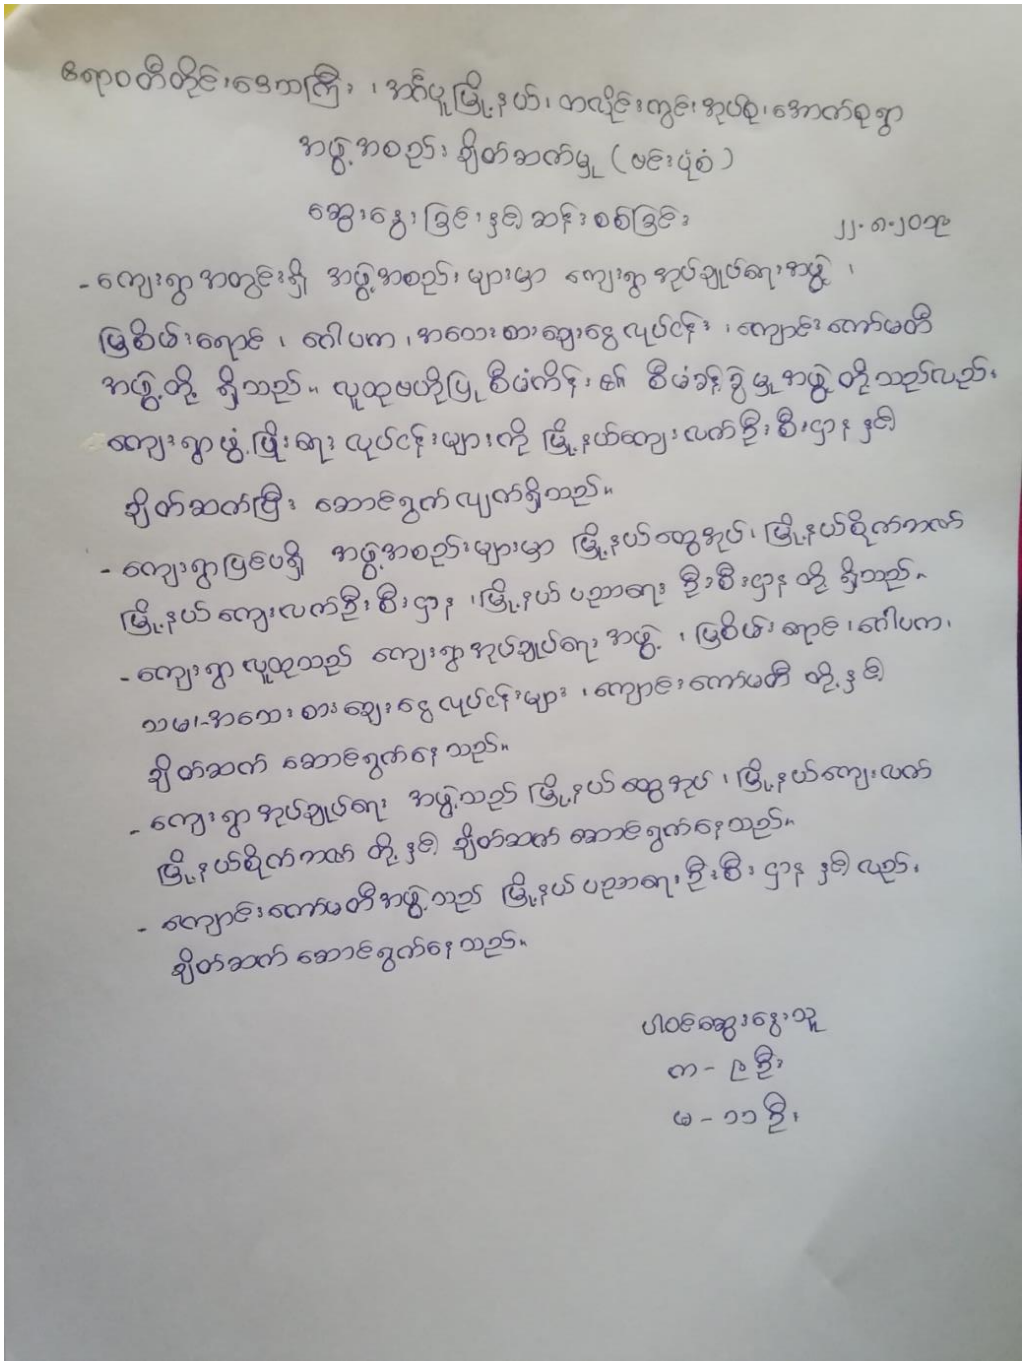 ဧရာဝတီတိုင်းဒေသကြီး ၊ အင်္ဂပူမြို့နယ်၊ ကလိုင်းကွင်းအုပ်စု၊ အောက်စုရွာ
အဖွဲ့အစည်း ချိတ်ဆက်မှု (ဗင်းပုံစံ)
ဆွေးနွေးခြင်းနှင့် ဆန်းစစ်ခြင်း
၂၂.၈.၂၀၁၉
- ကျေးရွာအတွင်းရှိ အဖွဲ့အစည်းများမှာ ကျေးရွာအုပ်ချုပ်ရေးအဖွဲ့ ၊
မြစိမ်းရောင် ၊ ဂေါပက ၊ အသေးစားချေးငွေလုပ်ငန်း ၊ ကျောင်းကော်မတီ
အဖွဲ့တို့ ရှိသည်။ လူထုဗဟိုပြုစီမံကိန်း၏ စီမံခန့်ခွဲမှုအဖွဲ့တို့သည်လည်း
ကျေးရွာဖွံ့ဖြိုးရေး လုပ်ငန်းများကို မြို့နယ်ကျေးလက်ဦးစီးဌာနနှင့်
ချိတ်ဆက်ပြီး ဆောင်ရွက်လျက်ရှိသည်။
- ကျေးရွာပြင်ပရှိ အဖွဲ့အစည်းများမှာ မြို့နယ်ထွေအုပ်၊ မြို့နယ်စိုက်ဘဏ်
မြို့နယ်ကျေးလက်ဦးစီးဌာန ၊ မြို့နယ်ပညာရေး ဦးစီးဌာန တို့ ရှိသည်။
- ကျေးရွာလူထုသည် ကျေးရွာအုပ်ချုပ်ရေး အဖွဲ့ ၊ မြစိမ်းရောင် ၊ ဂေါပက ၊
သမ၊-အသေးစားချေးငွေလုပ်ငန်းများ ၊ ကျောင်းကော်မတီ တို့နှင့်
ချိတ်ဆက် ဆောင်ရွက်နေသည်။
- ကျေးရွာအုပ်ချုပ်ရေး အဖွဲ့သည် မြို့နယ်ထွေအုပ် ၊ မြို့နယ်ကျေးလက်
မြို့နယ်စိုက်ဘဏ် တို့နှင့် ချိတ်ဆက် ဆောင်ရွက်နေသည်။
- ကျောင်းကော်မတီအဖွဲ့သည် မြို့နယ်ပညာရေးဦးစီးဌာနနှင့်လည်း
ချိတ်ဆက် ဆောင်ရွက်နေသည်။
ပါဝင်ဆွေးနွေးသူ
က - ၉ ဦး
မ - ၁၁ ဦး